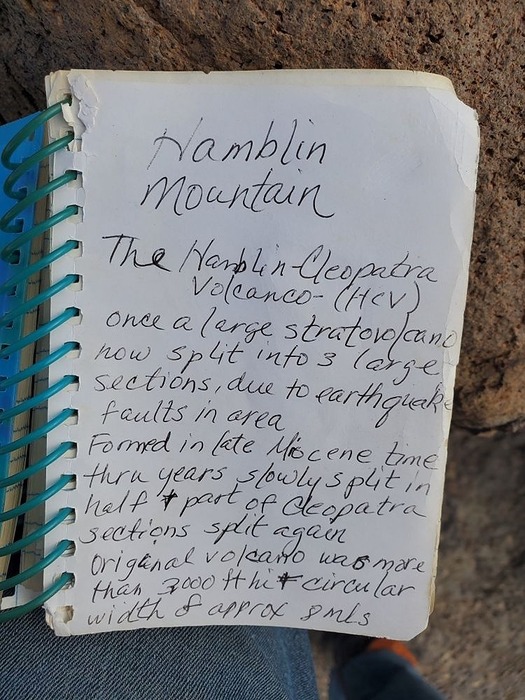 Hamblin
Mountain
The Hamblin-Cleopatra
Volcanco- (HCV)
once a large stratovolcano
now split into 3 large
sections, due to earthquake
faults in area
Formed in late Miocene time
thru years slowly split in
half + part of Cleopatra
sections split again
Original volcano was more
than 3000 ft hi + circular
width of approx 8 mls